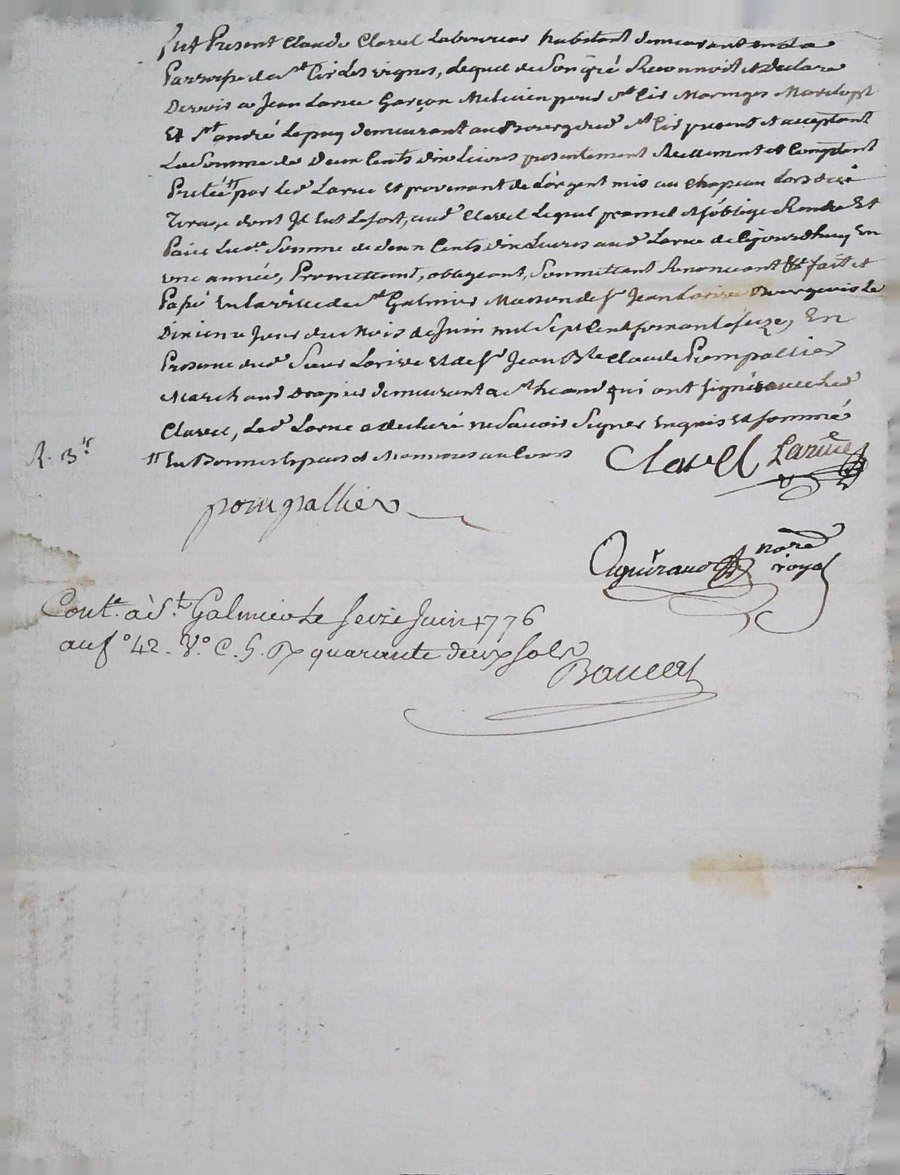 fut Present Claude Clavel Laboureur habitant demeurant en la
Parroisse de St Cir Les vignes, Lequel de Son gré Reconnoit et Declare
Devoir a Jean Larue Garçon Milicien pour St Cir Maringes
Et St andré Lepuy demeurant au Bourg dud. St Cir present et acceptant
La Somme de Deux Cents dix Livres presentement Reellement et Comptant
Pretée # par led Larue Et provenant de L'argent mis au chapeau Lors du
Tirage dont Il Eut Lesort, aud Clavel Lequel promet et s'oblige Rendre Et
Paier Lade Somme de deux Cents dix Livres aud Larue de Cejourdhuy En
une année, Promettant, obligeant, Soumettant Renonceant &a fait et
Passé En la ville de St Galmier Maison de Sr Jean Larive Bourgeois Le
Dixieme Jour du Mois de Juin mil Sept Cent soixante seize, En
Presence dud Sieur Larive Et de Sr Jean Bte Claude Pompallier
Marchand Drapier demeurant a St qui ont signé avec led
Clavel, Led Larue a declaré ne Savoir Signer Enquis Et sommé
R. 3 s
# En Bonnes Especes et Monnoies au Cours
Clavel Larive
pompallier
nore
royal
Contlé à St Galmier Le seize Juin 1776
au fo 42. Vo C. 5. R quarante deux sols